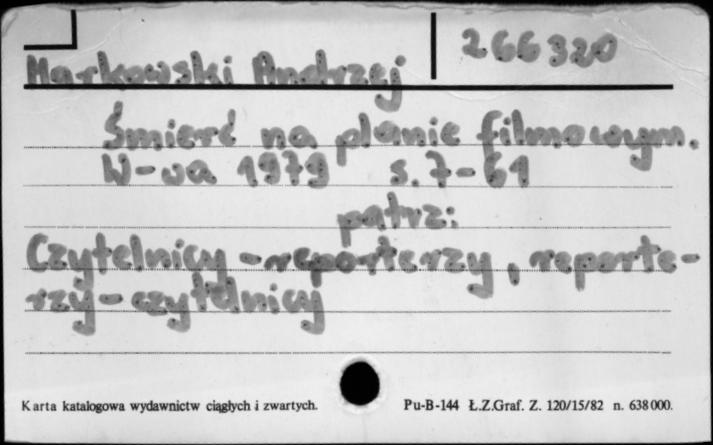 266320
Markowski Andrzej
Śmierć na planie filmowym.
W-wa 1979 s. 7-61
patrz:
Czytelnicy - reporterzy, reporte-
rzy - czytelnicy
Karta katalogowa wydawnictw ciągłych i zwartych. Pu-B-144 Ł.Z.Graf. Z. 120/15/82 n. 638 000.